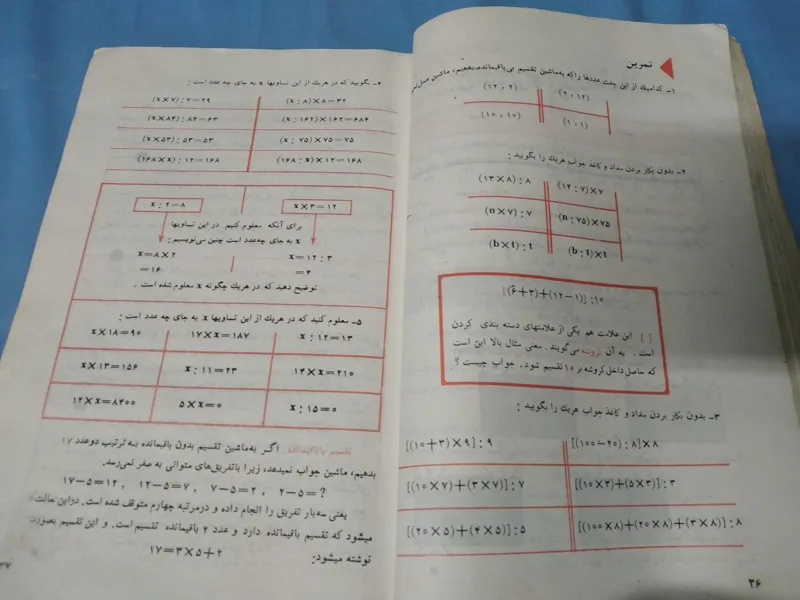 تمرین
۱- کدامیك از این جفت عددها راکه به‌ماشین تقسیم بی‌باقیمانده بدهیم، ماشین
(۱۲ , ۲) (۲ , ۱۲)
(۱۰ , ۱۰) (۱ , ۱)
۲- بدون بکار بردن مداد و کاغذ جواب هریك را بگویید :
(۱۳×۸) : ۸ (۱۲ : ۷)×۷
(n×۷) : ۷ (n : ۷۵)×۷۵
(b×t) : t (b : t)×t
[(۶+۳)+(۱۲−۱)] : ۱۰
[ ] این علامت هم یکی از علامتهای دسته بندی کردن
است . به آن کروشه می‌گویند . معنی مثال بالا این است
که حاصل داخل کروشه بر ۱۰ تقسیم شود. جواب چیست ؟
۳- بدون بکار بردن مداد و کاغذ جواب هریك را بگویید :
[(۱۰+۳)×۹] : ۹ [(۱۰۰−۲۰) : ۸]×۸
[(۱۰×۷)+(۳×۷)] : ۷ [(۱۰×۳)+(۵×۳)] : ۳
[(۲۰×۵)+(۴×۵)] : ۵ [(۱۰۰×۸)+(۲۰×۸)+(۳×۸)] : ۸
۳۶
۴- بگویید که در هریك از این تساویها x به جای چه عدد است :
(x×۷) : ۷=۲۹ (x : ۸)×۸=۳۲
(x×۸۴) : ۸۴=۶۳ (x : ۱۶۲)×۱۶۲=۶۸۴
(x×۵۳) : ۵۳=۵۳ (x : ۷۵)×۷۵=۷۵
(۱۶۸×x) : ۱۲=۱۶۸ (۱۶۸ : x)×۱۲=۱۶۸
x : ۲=۸ x×۳=۱۲
برای آنکه معلوم کنیم در این تساویها
x به جای چه‌عدد است چنین می‌نویسیم :
x=۸×۲ x=۱۲ : ۳
=۱۶ =۴
توضیح دهید که در هریك چگونه x معلوم شده است .
۵- معلوم کنید که در هریك از این تساویها x به جای چه عدد است :
x×۱۸=۹۰ ۱۷×x=۱۸۷ x : ۱۲=۱۳
x×۱۳=۱۵۶ x : ۱۱=۲۳ ۱۴×x=۲۱۰
۱۲×x=۸۴۰۰ ۵×x=۰ x : ۱۵=۰
تقسیم باباقیمانده. اگر به‌ماشین تقسیم بدون باقیمانده به ترتیب دوعدد ۱۷
بدهیم، ماشین جواب نمیدهد، زیرا باتفریق‌های متوالی به صفر نمی‌رسد.
۱۷−۵=۱۲ , ۱۲−۵=۷ , ۷−۵=۲ , ۲−۵=؟
یعنی سه‌بار تفریق را انجام داده و درمرتبه چهارم متوقف شده است. دراین حالت
میشود که تقسیم باقیمانده دارد و عدد ۲ باقیمانده تقسیم است. و این تقسیم بصورت
نوشته میشود: ۱۷=۳×۵+۲
۳۷